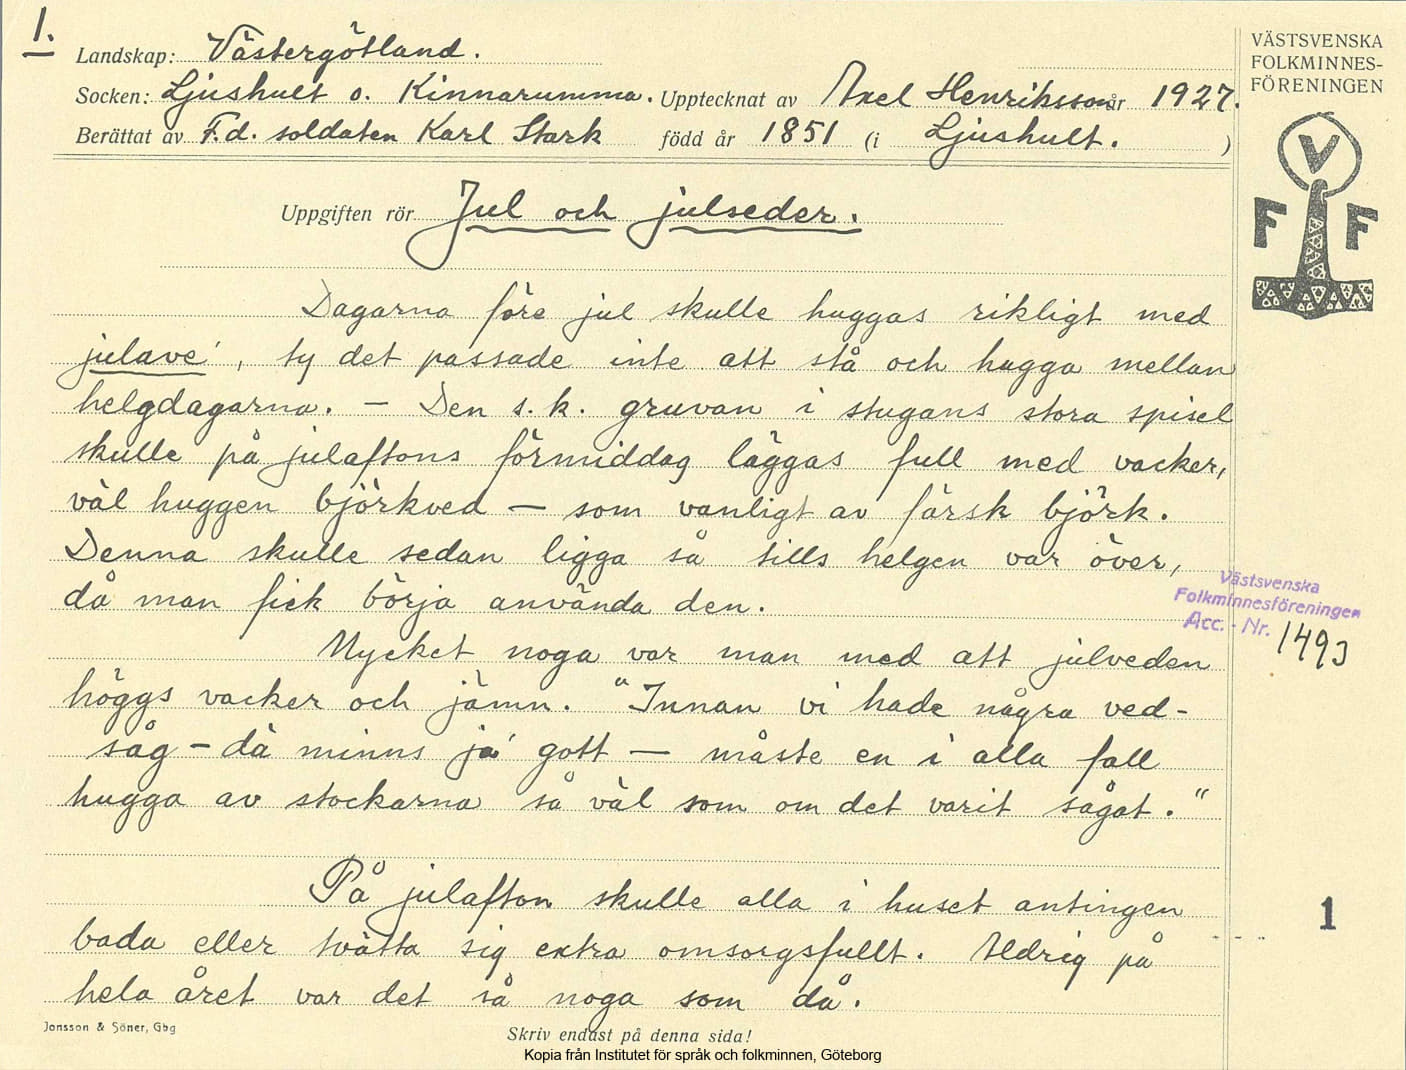 1.
Landskap: Västergötland.
Socken: Ljushult o. Kinnarumma. Upptecknat av Axel Henriksson år 1927.
Berättat av F.d. soldaten Karl Stark född år 1851 (i Ljushult. )
Uppgiften rör Jul och julseder.
Dagarna före jul skulle huggas rikligt med
julave', ty det passade inte att stå och hugga mellan
helgdagarna. — Den s.k. gruvan i stugans stora spisel
skulle på julaftons förmiddag läggas full med vacker,
väl huggen björkved — som vanligt av färsk björk.
Denna skulle sedan ligga så tills helgen var över,
då man fick börja använda den.
Mycket noga var man med att julveden
höggs vacker och jämn. "Innan vi hade några ved-
såg – dä minns ja' gott — måste en i alla fall
hugga av stockarna så väl som om det varit sågat."
På julafton skulle alla i huset antingen
bada eller tvätta sig extra omsorgsfullt. Aldrig på
hela året var det så noga som då.
Jonsson & Söner, Gbg
Skriv endast på denna sida!
Kopia från Institutet för språk och folkminnen, Göteborg
VÄSTSVENSKA
FOLKMINNES-
FÖRENINGEN
V
F F
Västsvenska
Folkminnesföreningen
Acc. - Nr. 1493
1